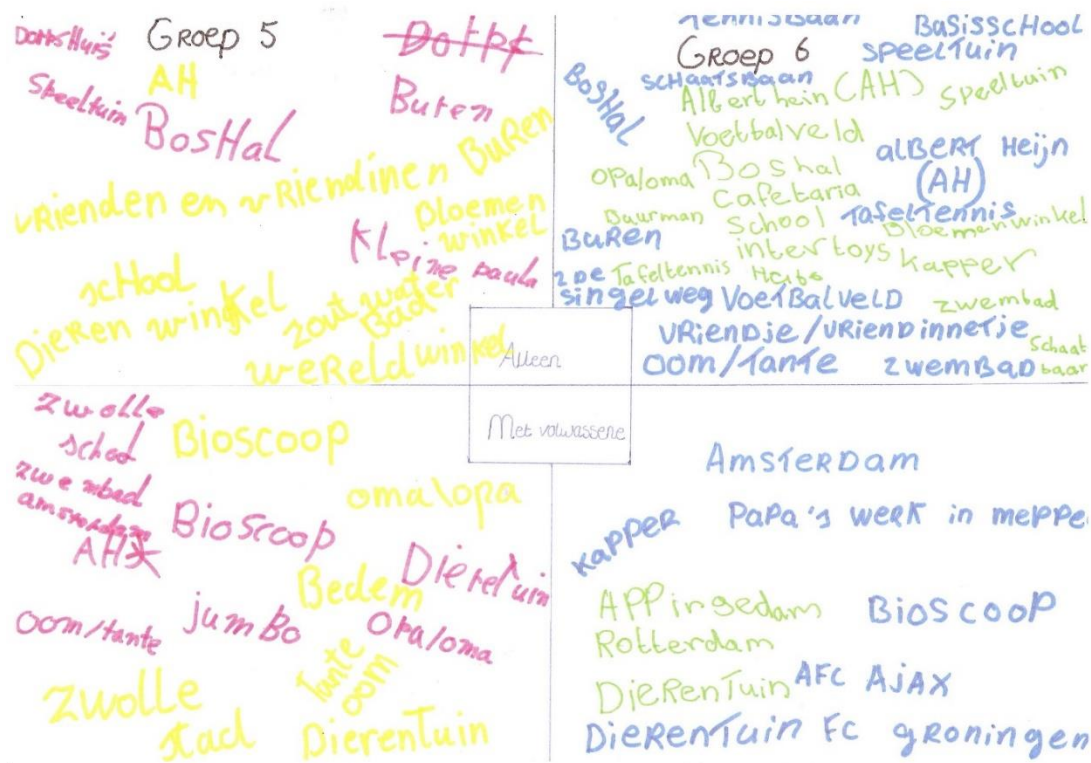 Groep 5
AH
Speeltuin
BosHal
Buren
BuRen
vRienden en vRiendinen
Bloemen
winkel
Kleine paula
scHool
Dieren winkel
zout water
Bad
weReld winkel
Groep 6
Tennisbaan
BasisscHool
speeltuin
BosHal
scHaatsBaan
Albert hein (AH)
speeltuin
Voetbalveld
alBERT Heijn
(AH)
opa/oma
Boshal
cafetaria
Buurman
School
TafelTennis
Bloemenwinkel
BuRen
intertoys
kapper
2de
Tafeltennis
singelweg
VoetBalveLD
zwembad
vRiendje/vRienDinnetje
schaat
baar
oom/Tante
zwemBad
Alleen
Met volwassene
zwolle
school
Bioscoop
zwembad
amsterdam
oma\opa
Bioscoop
AH
Dieretuin
Bedem
oom/tante
jumBo
opa/oma
Tante
oom
zwolle
stad
Dierentuin
AmsTerDam
kapper
PaPa's weRk in meppe
APPingedam
BioscooP
Rotterdam
DieRenTuin
AFC AjAX
DieRenTuin
FC gRoningen